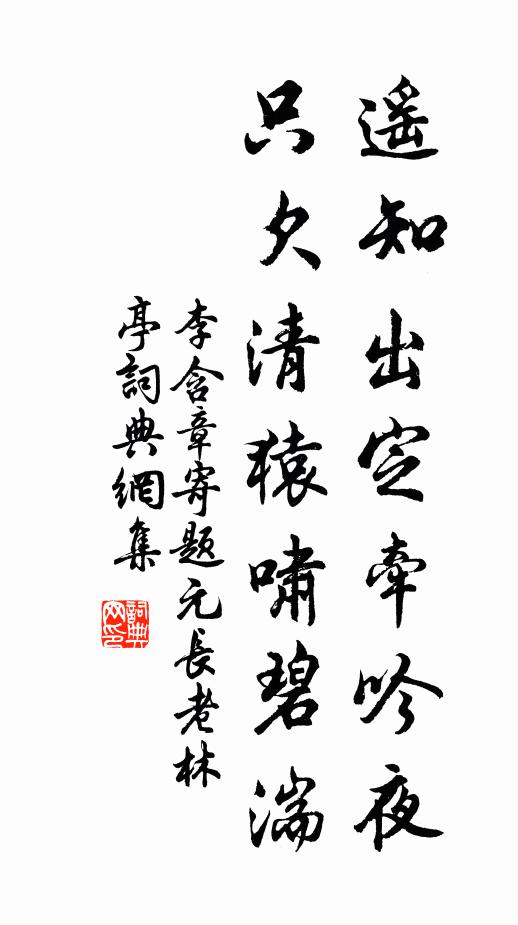 遥知出定牽吟夜
只欠清猿嘯碧湍
李含章寄題元長老林
亭詞典網集
詞典
网印